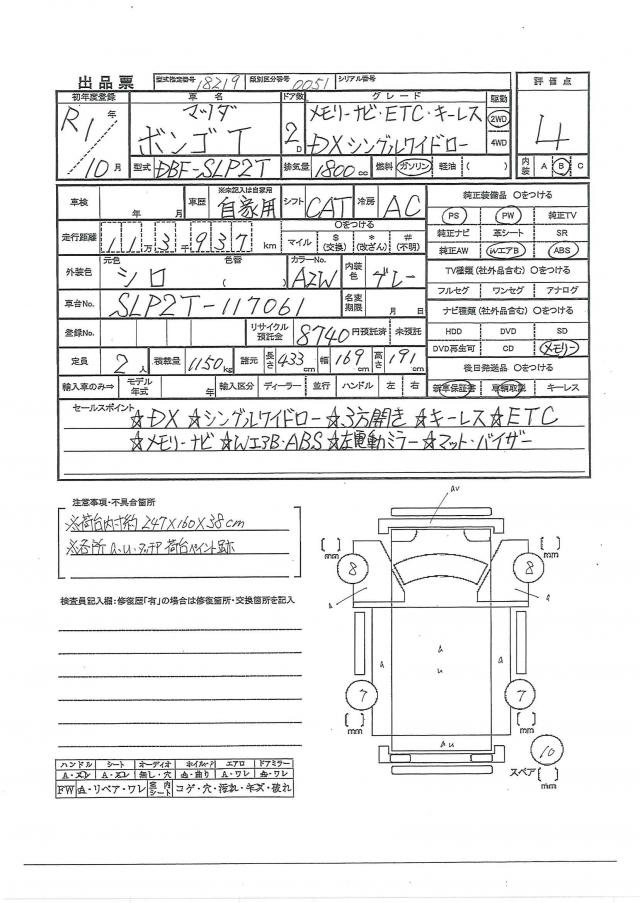 出品票 型式指定番号 18219 類別区分番号 0051 シリアル番号
初年度登録 車名 ドア数 グレード 駆動 評価点
R1年 マツダ メモリーナビ・ETC・キーレス 2WD 4
10月 ボンゴT 2D DXシングルワイドロー 4WD
型式 DBF-SLP2T 排気量 1800cc 燃料 ガソリン 軽油 ( ) 内装 A B C
車検 年 月 車歴 ※未記入は自家用 自家用 シフト CAT 冷房 AC 純正装備品 〇をつける
PS PW 純正TV
走行距離 11万3千937km 〇をつける マイル $(交換) *(改ざん) #(不明) 純正ナビ 革シート SR
純正AW WエアB ABS
外装色 元色 シロ 色替 ( ) カラーNo. A2W 内装色 グレー TV種類(社外品含む) 〇をつける
フルセグ ワンセグ アナログ
車台No. SLP2T-117061 名変期限 月 日 ナビ種類(社外品含む) 〇をつける
登録No. リサイクル預託金 8740 円預託済 未預託 HDD DVD SD
DVD再生可 CD メモリー
定員 2人 積載量 1150kg 諸元 長さ 433cm 幅 169cm 高さ 191cm 後日発送品 〇をつける
輸入車のみ⇒ モデル年式 年 輸入区分 ディーラー 並行 ハンドル 左 右 新車保証書 車輌取説 キーレス
セールスポイント ☆DX ☆シングルワイドロー ☆3方開き ☆キーレス ☆ETC
☆メモリーナビ ☆WエアB・ABS ☆左電動ミラー ☆マット・バイザー
注意事項・不具合箇所
※荷台内寸約 247×160×38cm
※各所 a.u.タッチア 荷台ペイント跡
検査員記入欄:修復歴「有」の場合は修復箇所・交換箇所を記入
au
[ ] mm 8 8 [ ] mm
a a
a
u
a a
7 7
[ ] mm [ ] mm
au
10
スペア [ ] mm
ハンドル シート オーディオ エアロ ドアミラー
無し・穴 曲り A・ワレ ワレ
FW リペア・ワレ 室内シート コゲ・穴・汚れ・キズ・破れ